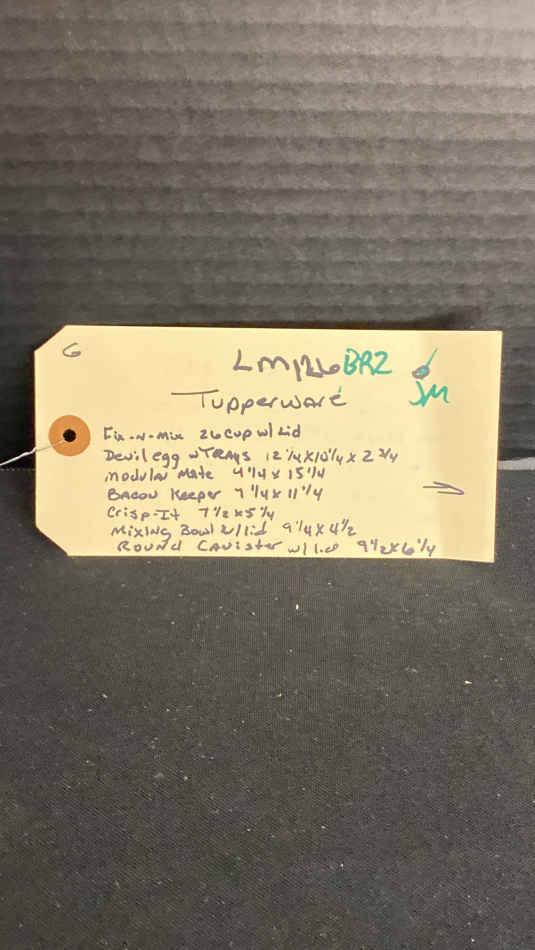 G
LM126BRZ
JM
Tupperware
Fix-N-Mix 26 cup w/ Lid
Devil egg w TRAYS 12 1/4 X 10 1/4 x 2 3/4
Modular Mate 9 1/4 x 15 1/4
BACON Keeper 7 1/4 x 11 1/4
Crisp-It 7 1/2 x 5 1/4
Mixing Bowl w/lid 9 1/4 X 4 1/2
ROUND CANister w/ lid 9 1/2 x 6 1/4